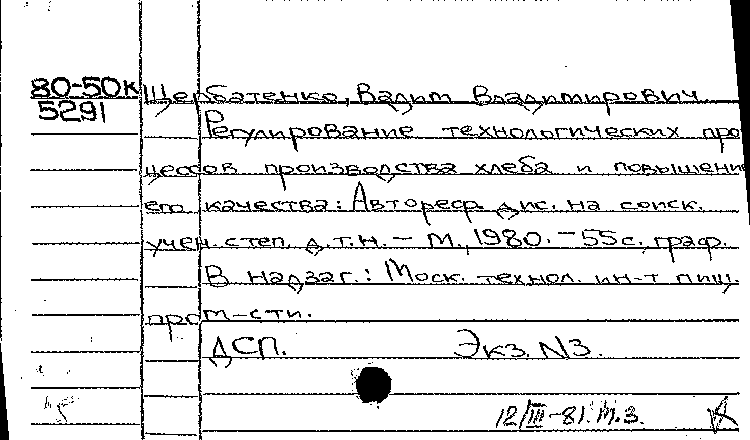 80-50к Щербатенко, Вадим Владимирович
5291
Регулирование технологических про
цессов производства хлеба и повышение
его качества: Автореф. дис. на соиск.
учен. степ. д.т.н. – М., 1980. – 55 с., граф.
В надзаг.: Моск. технол. ин-т пищ.
пром-сти.
ДСП. Экз. N3.
12/III-81. М.З.